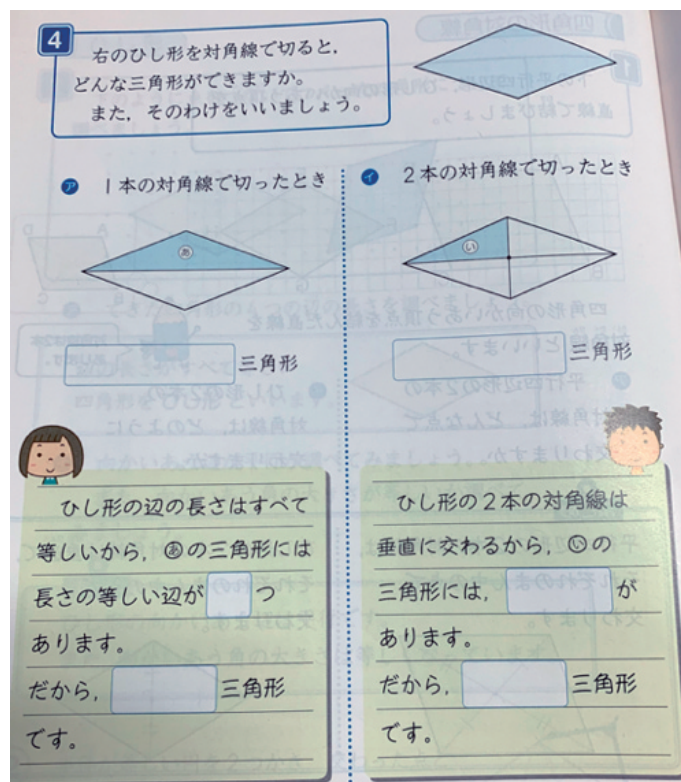 4
右のひし形を対角線で切ると，
どんな三角形ができますか。
また，そのわけをいいましょう。
ア 1本の対角線で切ったとき
あ
三角形
ひし形の辺の長さはすべて
等しいから，あの三角形には
長さの等しい辺が つ
あります。
だから， 三角形
です。
イ 2本の対角線で切ったとき
い
三角形
ひし形の2本の対角線は
垂直に交わるから，いの
三角形には， が
あります。
だから， 三角形
です。